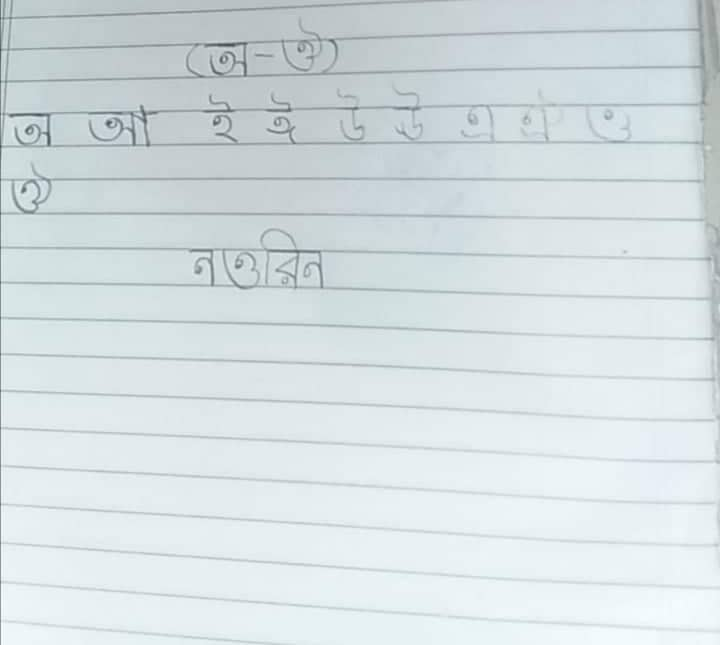 (অ-ঔ)
অ আ ই ঈ উ ঊ এ ঐ ও
ঔ
নওরিন